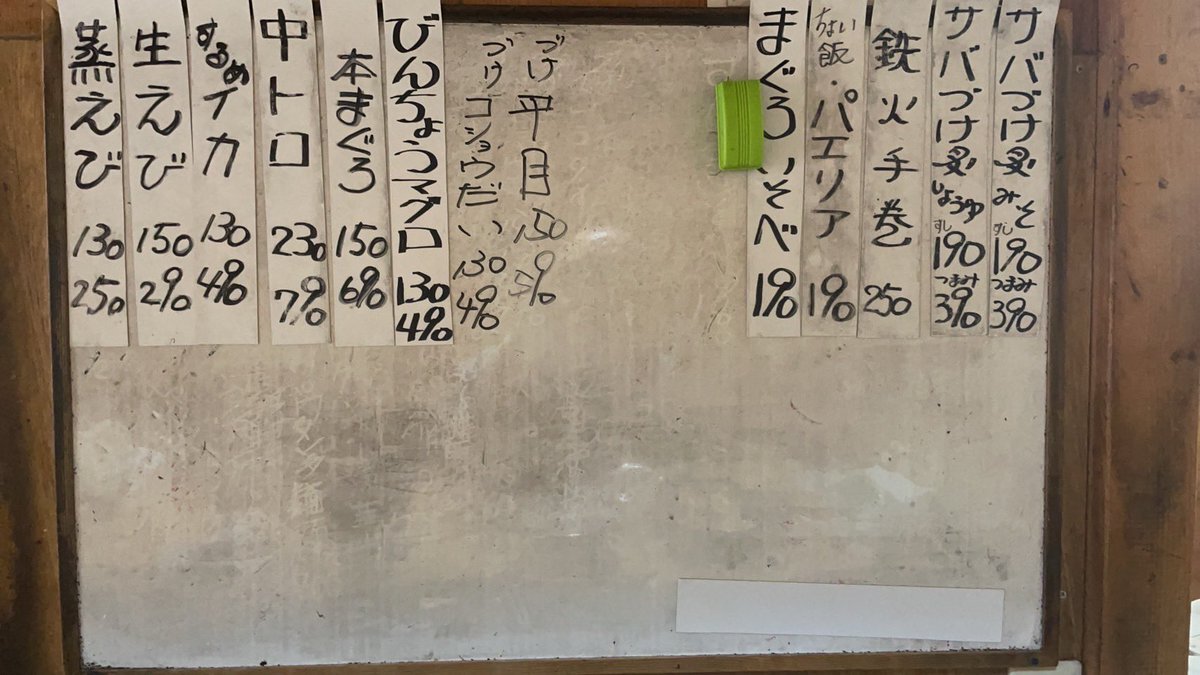 サバづけ炙みそすし190つまみ390
サバづけ炙しょうゆすし190つまみ390
鉄火手巻250
飯・パエリア190
まぐろいそべ190
づけ平目150
づけコショウだい130 490
びんちょうマグロ130 490
本まぐろ150 690
中トロ230 790
するめイカ130 490
生えび150 290
蒸えび130 250